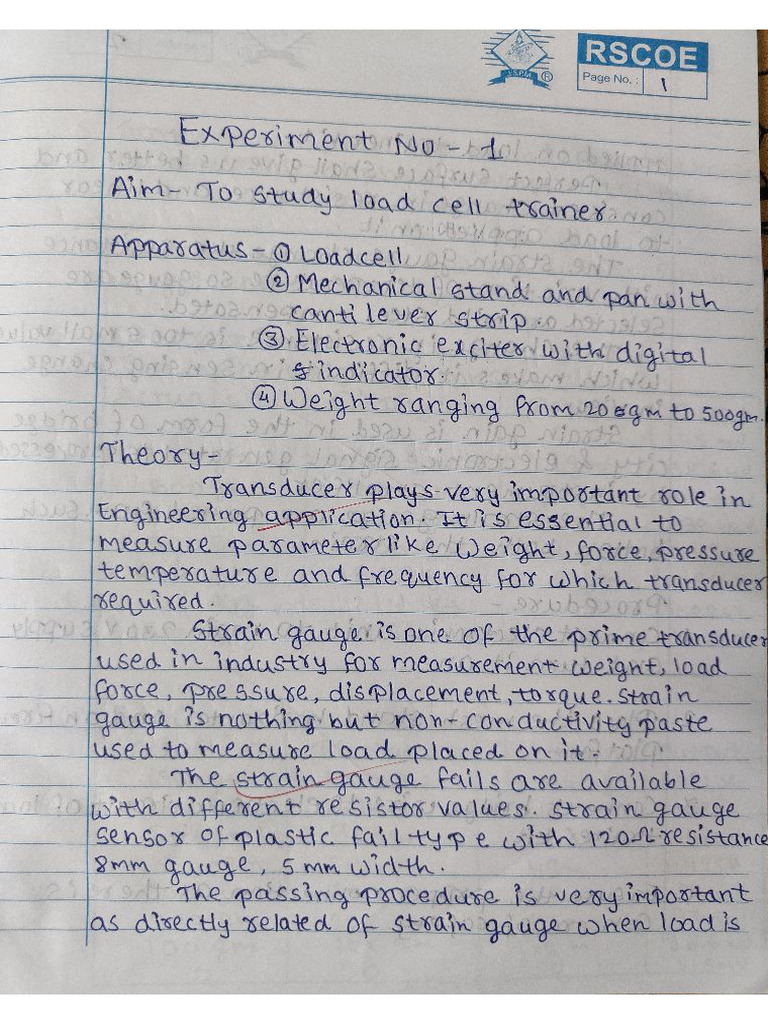 JSPM ®
RSCOE
Page No. : 1
Experiment No - 1
Aim - To study load cell trainer.
Apparatus - ① Loadcell
② Mechanical stand and pan with
cantilever strip.
③ Electronic exciter with digital
indicator.
④ Weight ranging from 20 gm to 500gm.
Theory -
Transducer plays very important role in
Engineering application. It is essential to
measure parameter like weight, force, pressure
temperature and frequency for which transducer
required.
Strain gauge is one of the prime transducer
used in industry for measurement weight, load
force, pressure, displacement, torque. strain
gauge is nothing but non-conductivity paste
used to measure load placed on it.
The strain gauge fails are available
with different resistor values. strain gauge
sensor of plastic fail type with 120Ω resistance
8mm gauge, 5 mm width.
The passing procedure is very important
as directly related of strain gauge when load is